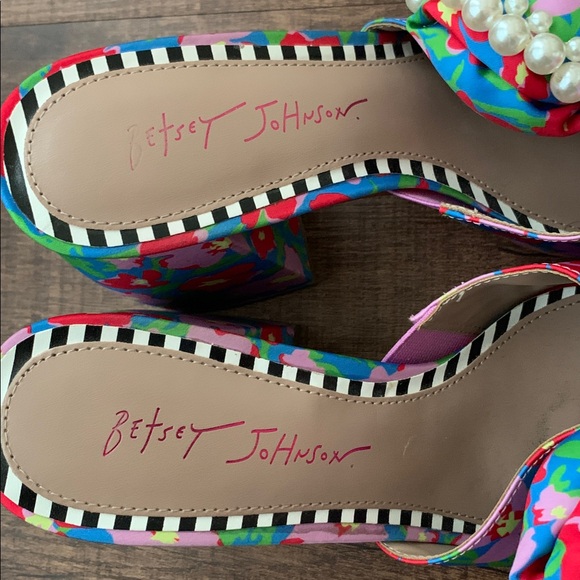 BETSEY JOHNSON.
BETSEY JOHNSON.